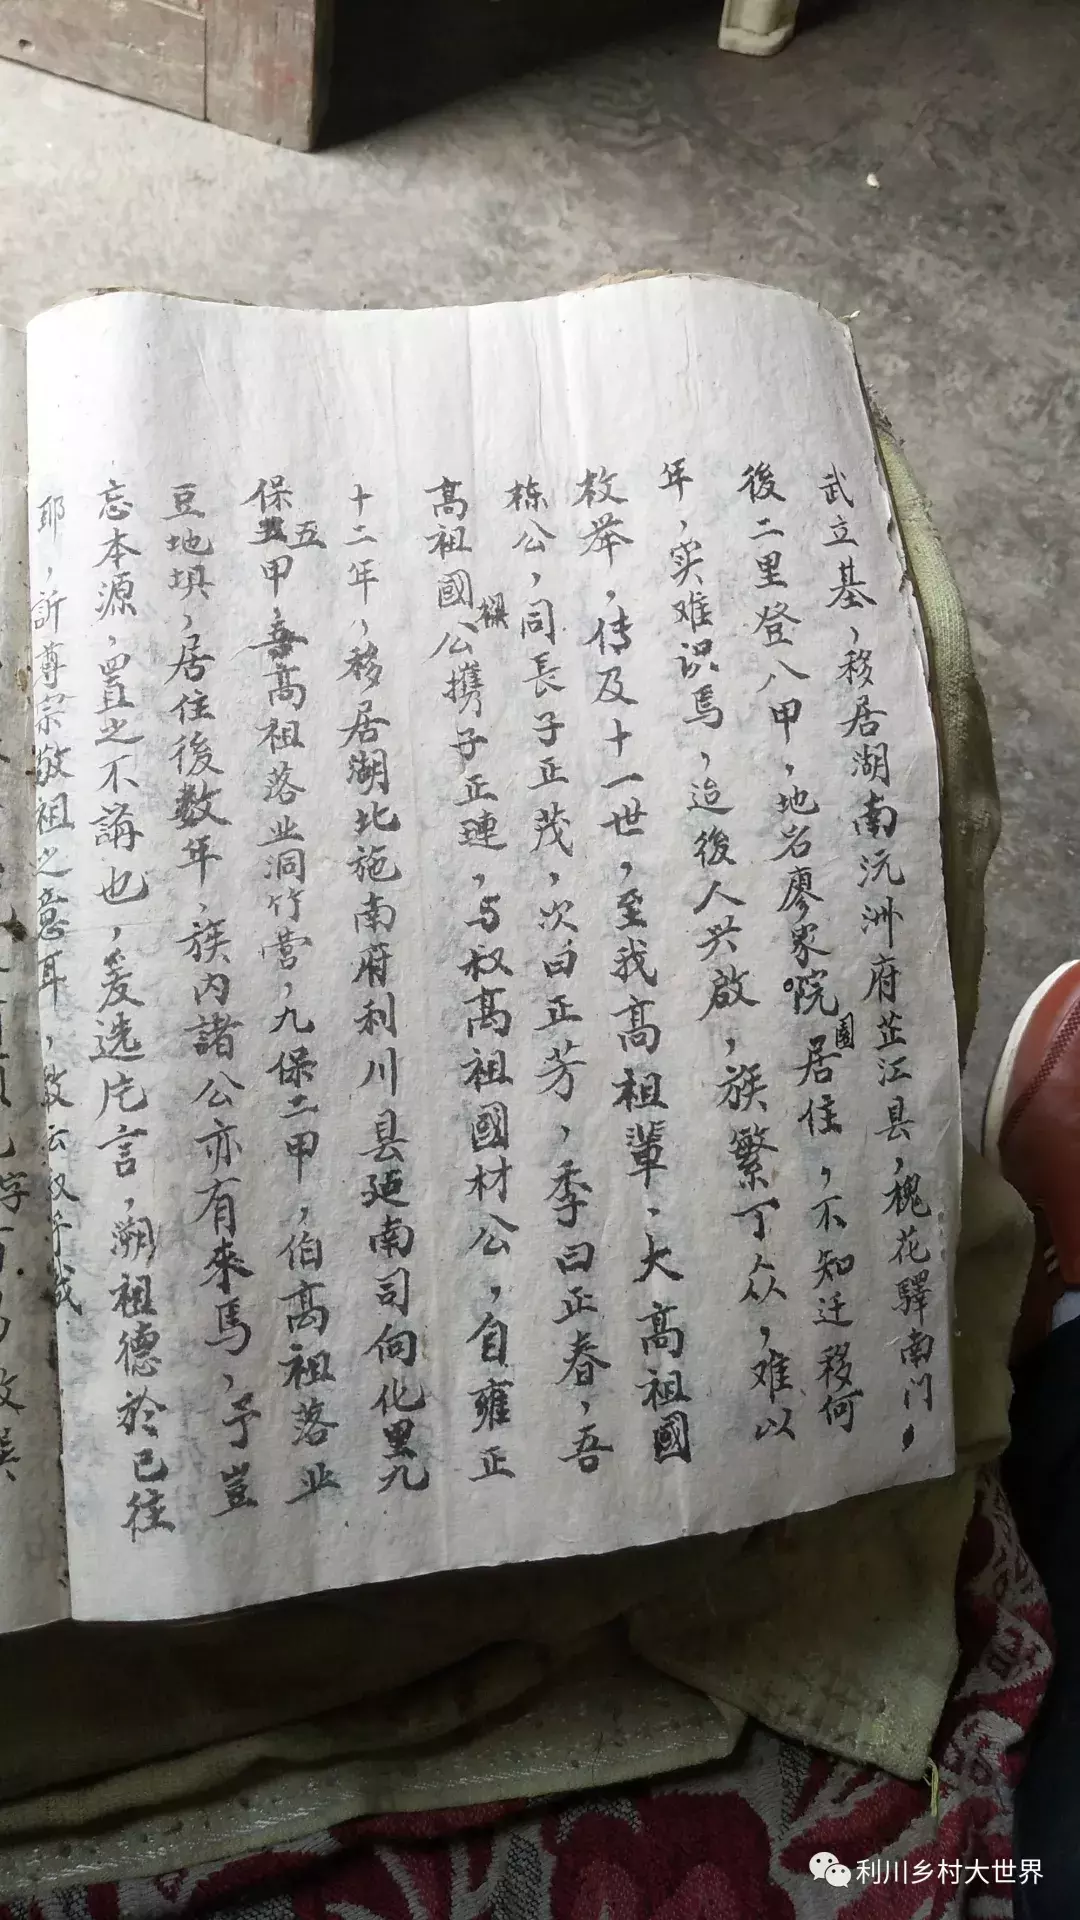 武立基，移居湖南沅洲府芷江县，槐花驛南门，
後二里登八甲，地名廖家院園居住，不知迁移何
年，实难识焉，迨後人兴啟，族繁丁众，难以
枚举，传及十一世，至我高祖輩、大高祖國
栋公，同長子正茂，次曰正芳，季曰正春，吾
高祖國公携子正璉，与叔高祖國材公，自雍正
十二年，移居湖北施南府利川县南司向化里九
保五甲，高祖落业洞竹营，九保二甲，伯高祖落业
豆地坝，居住後数年，族内諸公亦有來焉，予豈
忘本源，置之不講也，爰选片言，溯祖德於已往
耶，訢尊宗敬祖之意耳，故云叙乎哉
利川乡村大世界